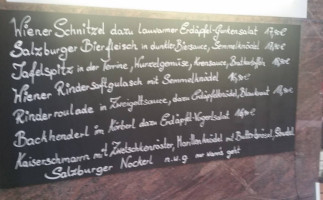 Wiener Schnitzel dazu lauwarmer Erdäpfel-Gurkensalat
Salzburger Bierfleisch in dunkler Biersauce, Semmelknödel
Tafelspitz in der Terrine, Wurzelgemüse, Krensauce, Butterkipfler
Wiener Rindersaftgulasch mit Semmelknödel
Rinderroulade in Zweigeltsauce, dazu Erdäpfelknödel, Blaukraut
Backhenderl im Körberl dazu Erdäpfel-Vogerlsalat
Kaiserschmarrn mit Zwetschkenröster, Marillenknödel mit Butterbrösel, Strudel
Salzburger Nockerl n.u.g